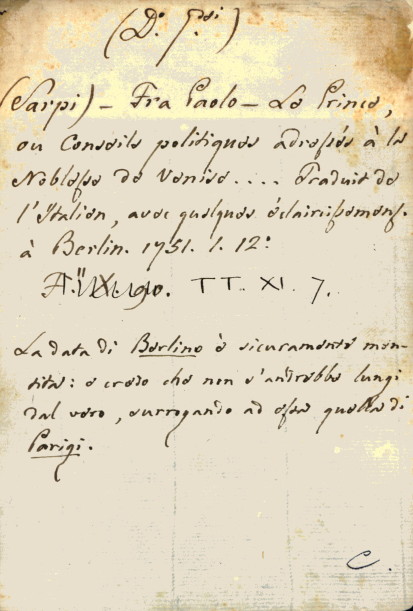 (Sarpi) - Fra Paolo - Le Prince,
ou Conseils politiques adressés à la
Noblesse de Venise.... Traduit de
l'Italien, avec quelques éclaircissemens.
à Berlin. 1751. 1. 12°
TT. XI. 7.
La data di Berlino è sicuramente men-
tita: e credo che non s'andrebbe lungi
dal vero, surrogando ad essa quella di
Parigi.
C.